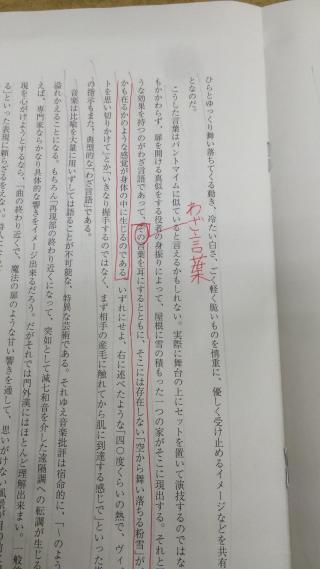 ひらとゆっくり舞い落ちてくる動き、冷たい白さ、ごく軽く脆いものを慎重に、優しく受け止めるイメージなどを共有
となのだ。
こうした言葉はパントマイムに似ていると言えるかもしれない。実際に舞台の上にセットを置いて演技するのではな
もかかわらず、扉を開ける真似をする役者の身振りによって、屋根に雪の積もった一つの家がそこに現出する。それと
うな効果を持つのがわざ言語であって、その言葉を耳にするとともに、そこには存在しない「空から舞い落ちる粉雪」が
かも在るかのような感覚が身体の中に生じるのである。いずれにせよ、右に述べたような「四〇度くらいの熱で、ヴィ
トを思い切りかけて」とか「いきなり握手するのではなく、まず相手の産毛に触れてから肌に到達する感じで」といった
の指示もまた、典型的な「わざ言語」である。
音楽は比喩を大量に用いずしては語ることが不可能な、特異な芸術である。それゆえ音楽批評は宿命的に、「〜のよう
溢れかえることになる。もちろん「再現部の終わり近くになって、突如として減七和音を介した遠隔調への転調が生じる
えば、専門家ならかなり具体的な響きをイメージ出来るだろう。だがそれでは門外漢にはほとんど理解出来まい。一般
現を心がけようとするなら、「曲の終わり近くで、魔法の扉のような甘い響きを通して、思いがけない風景が
る」といった表現に頼らざるをえない。
わざ言葉